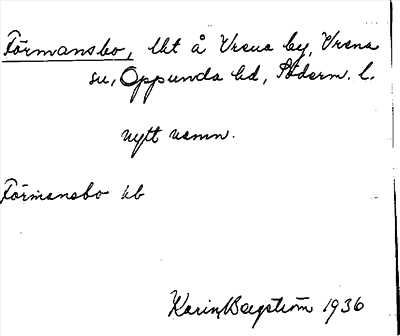 Förmansbo, lht å Vrena by, Vrena
sn, Oppunda hd, Söderm. l.
nytt namn.
Förmansbo ub
Karin Bergström 1936